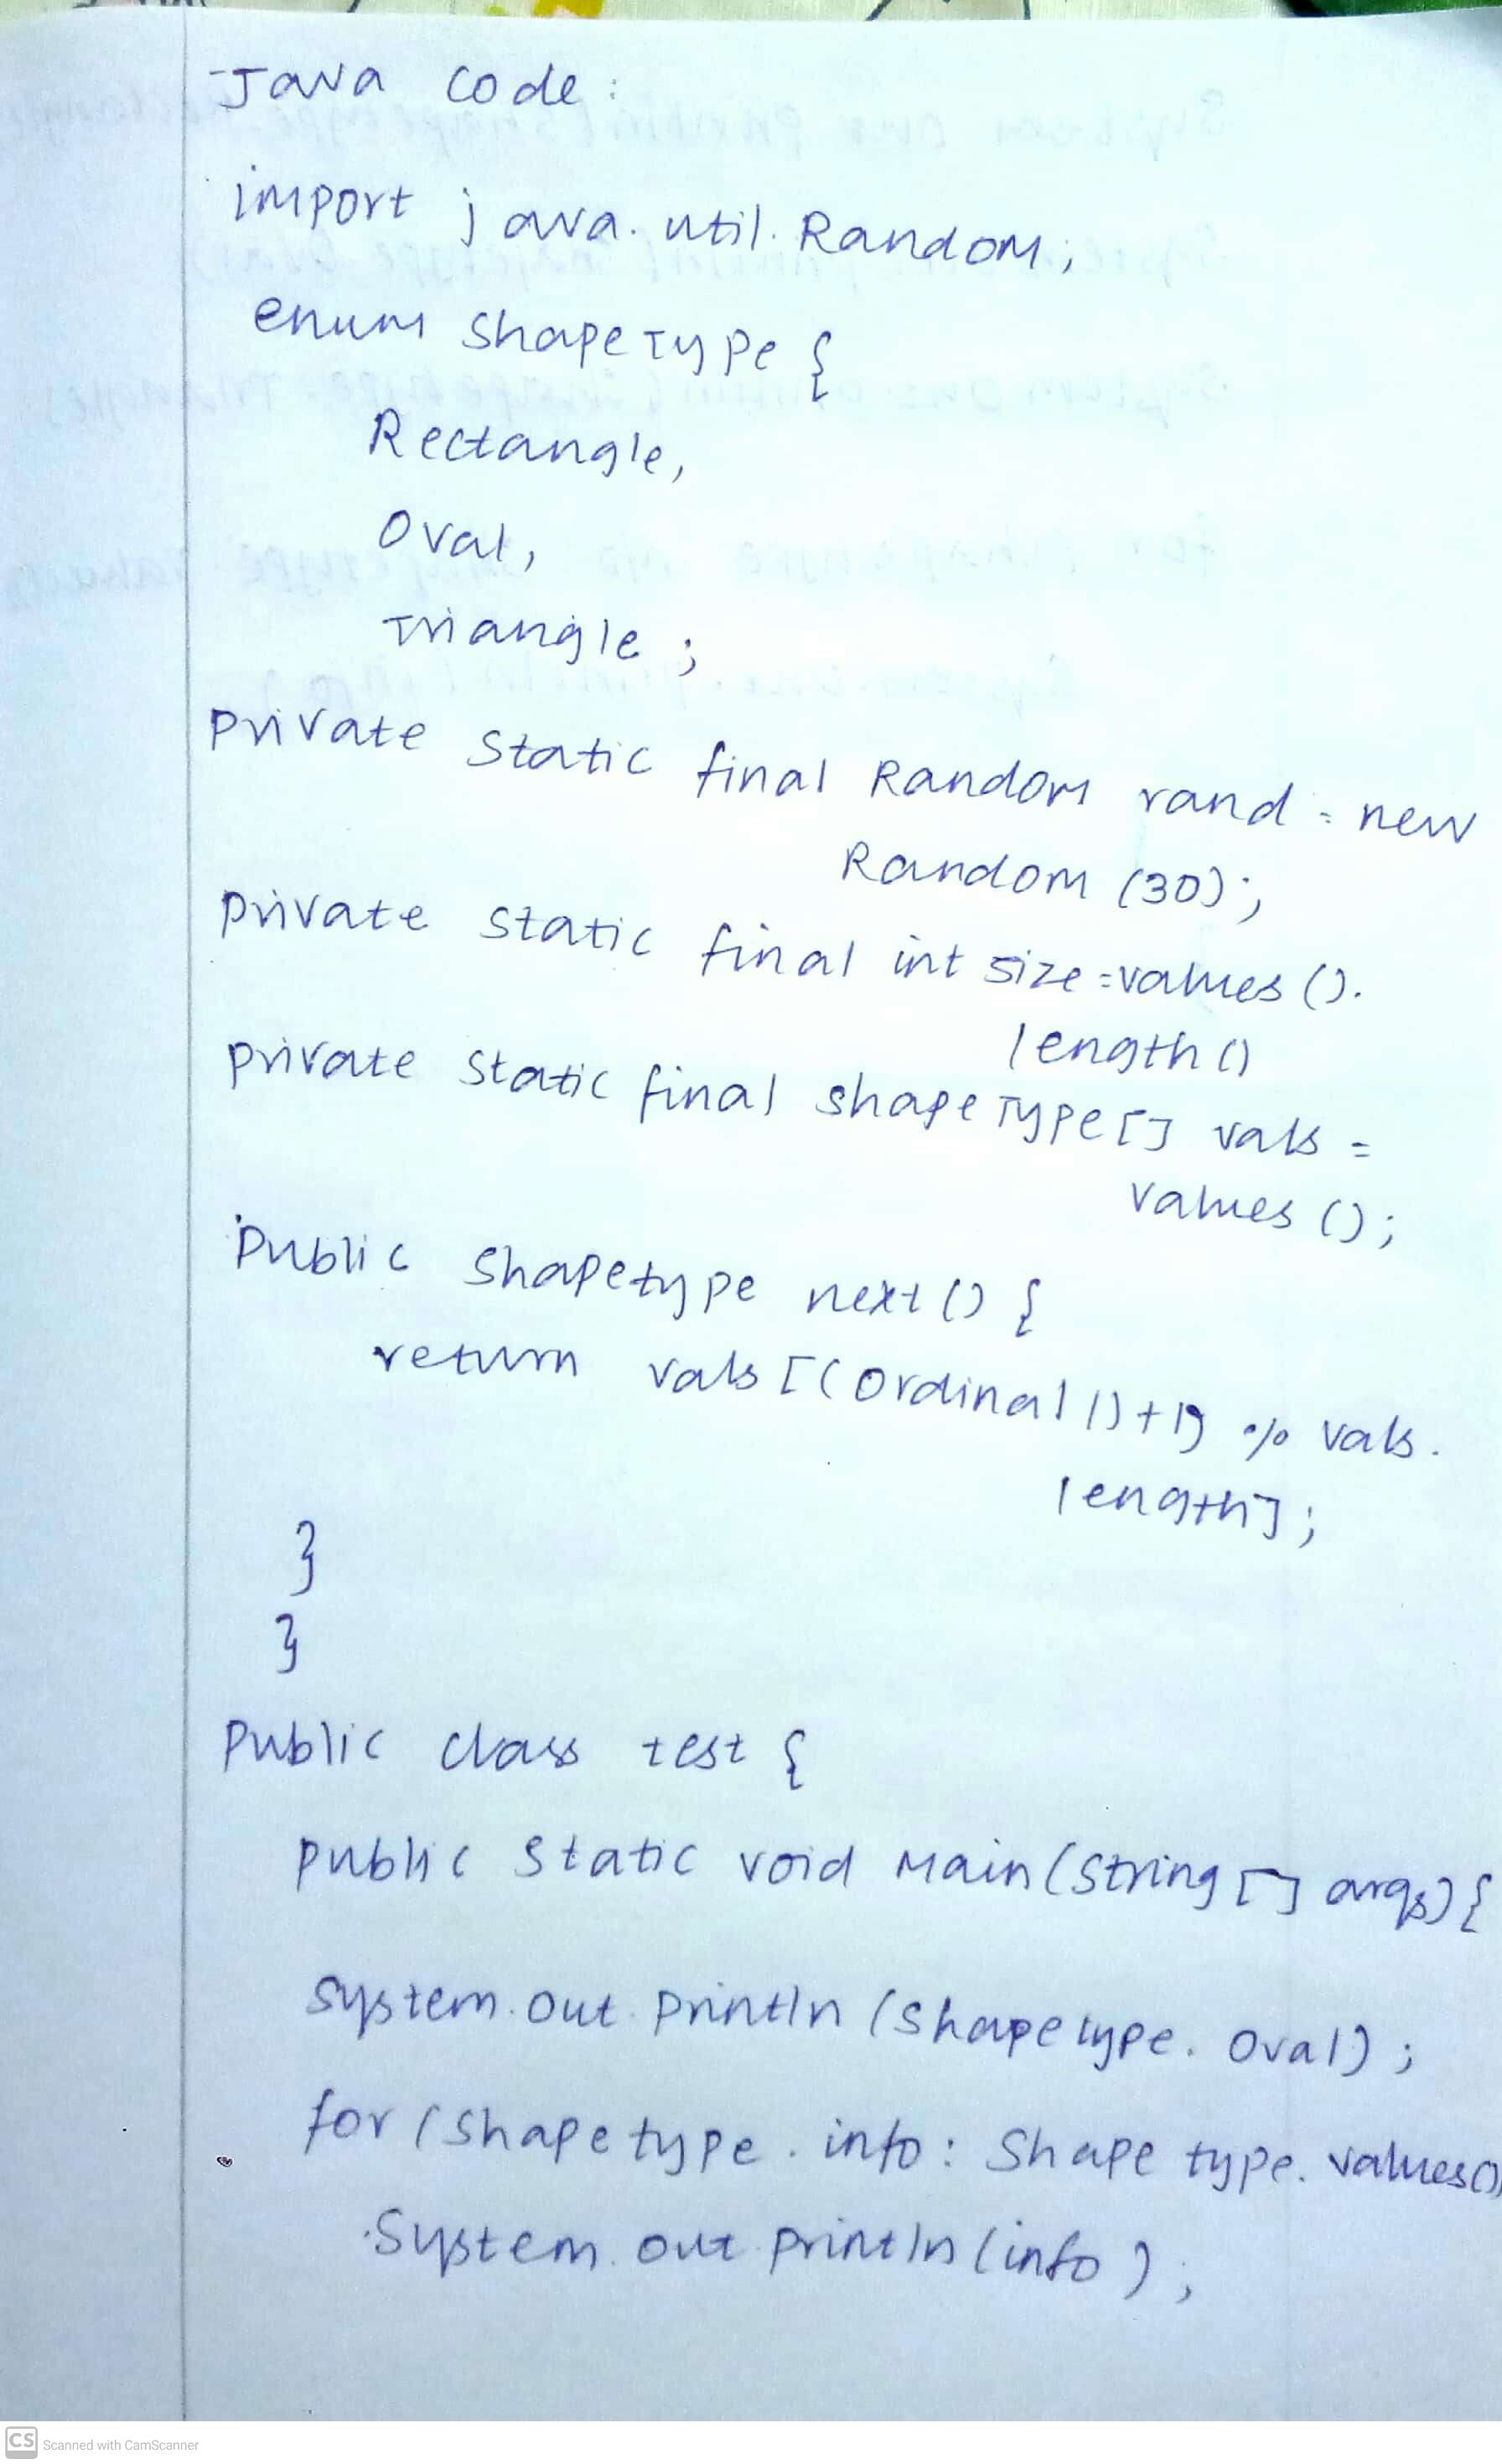 Java code:
import java.util.Random;
enum shapeType {
Rectangle,
Oval,
Triangle;
private static final Random rand = new
Random (30);
private static final int size = values ().
length ()
private static final shapeType[] vals =
values ();
public shapetype next () {
return vals [(ordinal ()+1) % vals.
length];
}
}
public class test {
public static void main (string [] args) {
system.out.println (shapetype. oval);
for (shapetype. info: shape type. values()
system.out.println (info);
CS Scanned with CamScanner